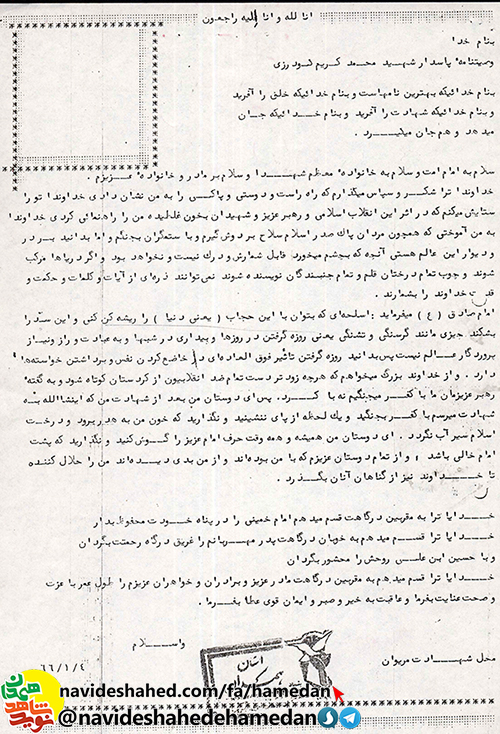 انا لله و انا الیه راجعون
بنام خدا
وصیتنامه پاسدار شهید محمد کریم گودرزی
بنام خدائیکه بهترین نامهاست و بنام خدائیکه خلق را آفرید
و بنام خدائیکه شهادت را آفرید و بنام خدائیکه جان
میدهد و هم جان میگیرد .
سلام به امام امت و سلام به خانواده معظم شهدا و سلام بر مادر و خانواده عزیزم .
خداوندا ترا شکر و سپاس میگذارم که راه راست و دوستی و پاکی را به من نشان دادی خداوندا تو را
ستایش میکنم که در اثر این انقلاب اسلامی و رهبر عزیز و شهیدان بخون غلطیده من را راهنمائی کردی خداوندا
به من آموختی که همچون مردان پاک صدر اسلام سلاح بر دوش گیرم و با ستمگران بجنگم و اما بدانید بر در
و دیوار این عالم هستی آنچه که بچشم میخورد قابل شمارش و درک نیست و نخواهد بود و اگر دریاها مرکب
شوند و چوب تمام درختان قلم و تمام جنبندگان نویسنده شوند نمی‌توانند ذره‌ای از آیات و کلمات و حکمت و
قدرت خداوند را بشمارند .
امام صادق ( ع ) میفرماید : اسلحه‌ای که بتوان با این حجاب ( یعنی دنیا ) را ریشه کن کنی و این سد را
بشکند چیزی مانند گرسنگی و تشنگی یعنی روزه گرفتن در روزها و بیداری در شبها و به عبادت و راز و نیاز
پروردگار عالم نیست پس بدانید روزه گرفتن تاثیر فوق العاده‌ای در خاضع کردن نفس و برداشتن خواسته‌ها
دارد . و از خداوند بزرگ میخواهم که هرچه زودتر دست تمام ضد انقلابیون از کردستان کوتاه شود و به گفته
رهبر عزیزمان ما با کفر میجنگیم نه با کرد . پس ای دوستان من بعد از شهادت من که اینشاالله به
شهادت میرسم با کفر بجنگید و یک لحظه از پای ننشینید و نگذارید که خون من به هدر برود و درخت
اسلام سیر آب نگردد . ای دوستان من همیشه و همه وقت حرف امام عزیز را گوش کنید و نگذارید که پشت
امام خالی باشد و از تمام دوستان عزیزم که با من بوده‌اند و از من بدی دیده‌اند من را حلال کننده
تا خداوند نیز از گناهان آنان بگذرد .
خدایا ترا به مقربین درگاهت قسم میدهم امام خمینی را در پناه خودت محفوظ بدار
خدایا ترا قسم میدهم به خوبان درگاهت پدر مهربانم را غریق درگاه رحمتت بگردان
و با حسین ابن علی روحش را محشور بگردان
خدایا ترا قسم میدهم به مقربین درگاهت مادر عزیز و برادران و خواهران عزیزم را طول عمر با عزت
و صحت عنایت بفرما و عاقبت به خیر و صبر و ایمان قوی عطا بفرما .
والسلام
محل شهادت مریوان
۶۶/۱/٤
navideshahed.com/fa/hamedan
@navideshahedehamedan